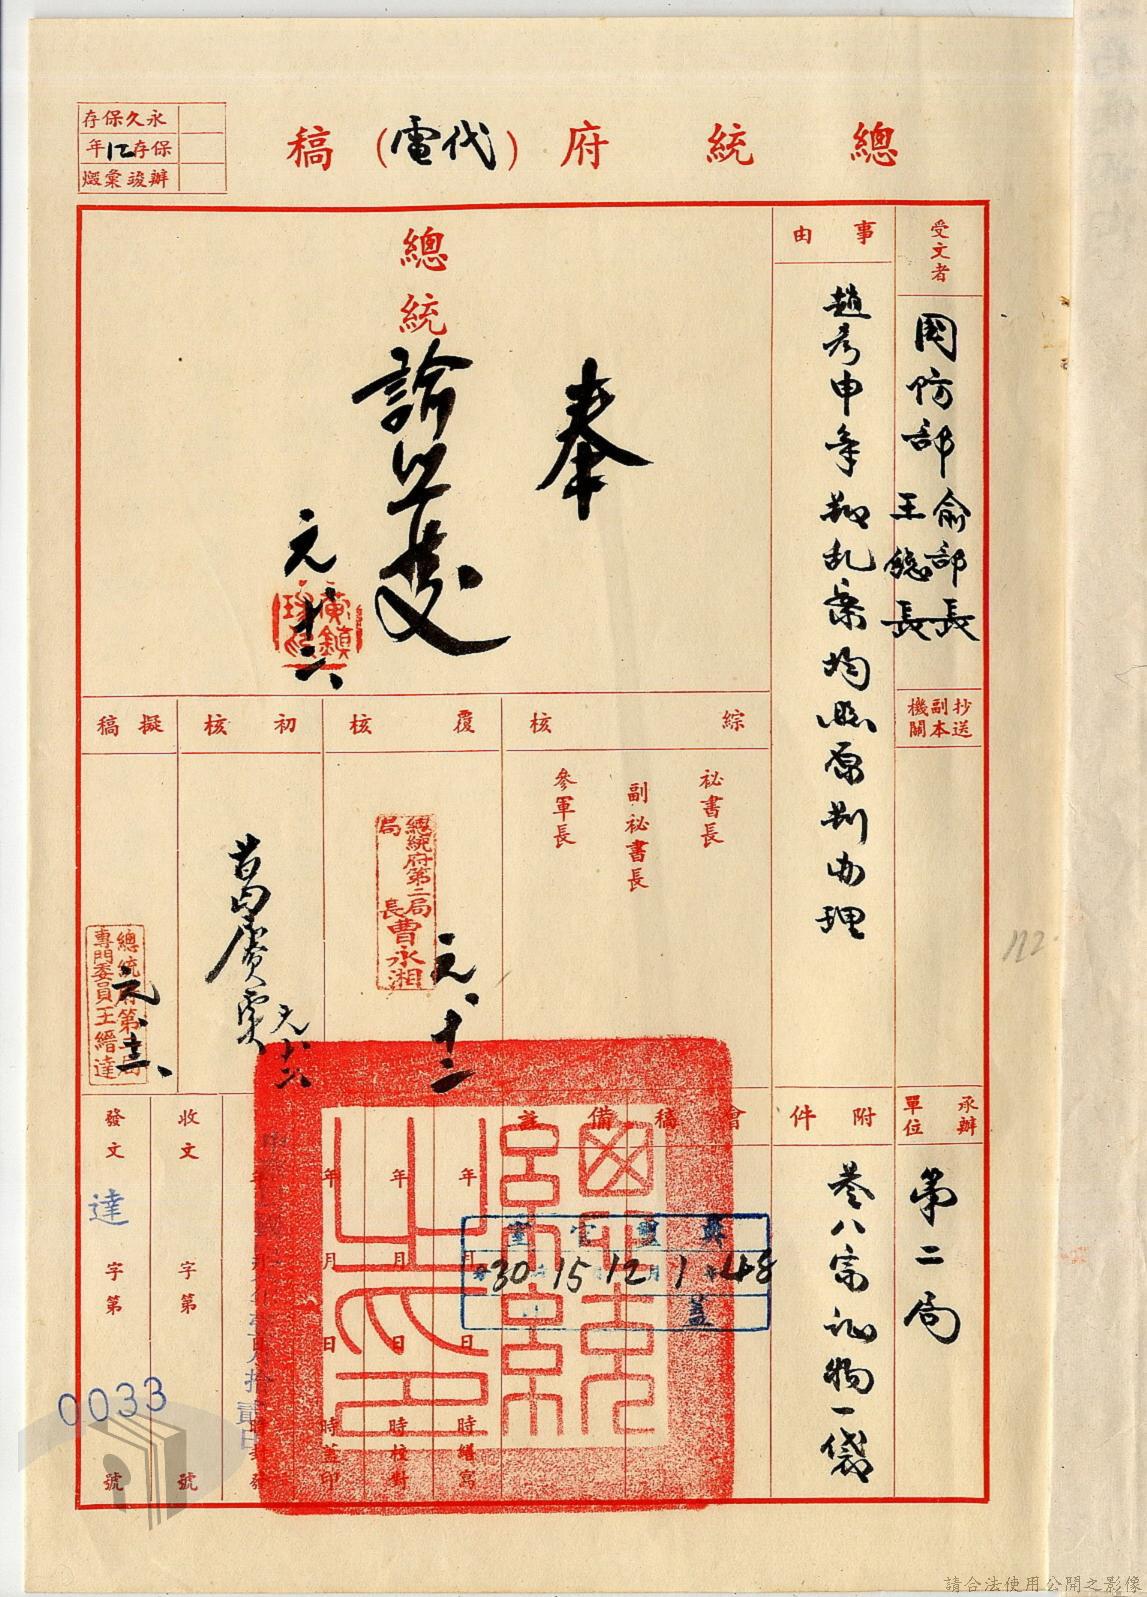 總統府(代電)稿
永久保存
保存12年
辦竣彙燬
受文者
國防部
俞部長
王總長
抄送副本機關
承辦單位
第二局
事由
趙彥申等叛乱案均照原判办理
附件
卷八宗証物一袋
奉
總統
諭照發
元、十二、
綜核
祕書長
副祕書長
參軍長
覆核
總統府第二局局長曹永湘
元、十二
初核
葛賡虞
擬稿
總統府第二局專門委員王縉達
元、十二、
會稿備註
48年1月12日15時30分
蓋
年月日時繕寫
年月日時校對
年月日時蓋印
收文
字第
號
發文
達
字第
0033
號
總統之印
112
請合法使用公開之影像